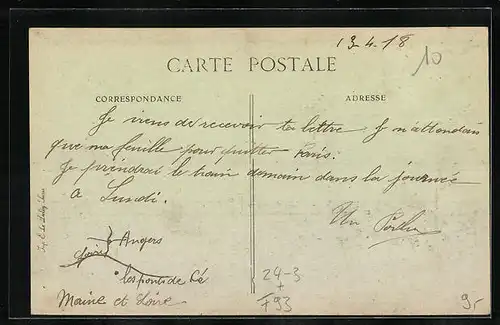 13-4-18
10
CARTE POSTALE
CORRESPONDANCE
ADRESSE
Je viens de recevoir ta lettre Je n'attendais
que ma feuille pour quitter Paris.
Je prendrai le train demain dans la journée
a Lundi.
Un
Angers
les ponts de Cé
Maine et Loire
24-3
+
793
9,-